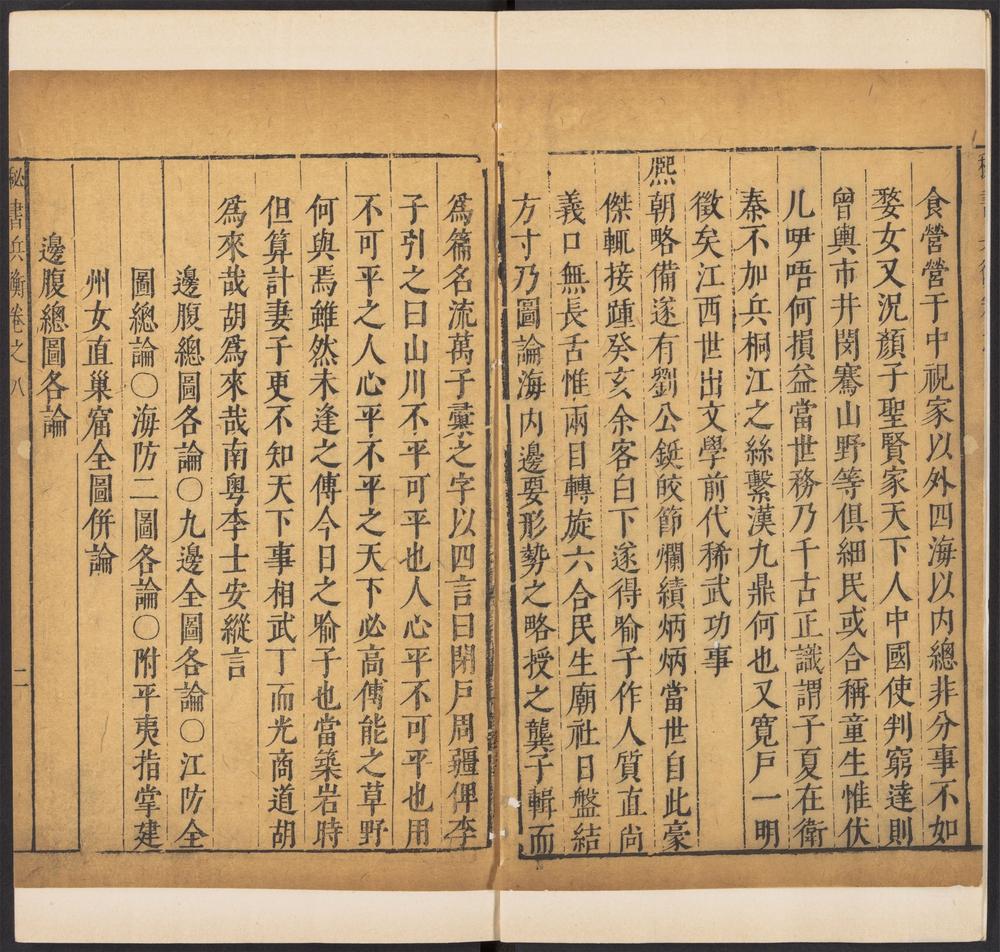 食營營于中視家以外四海以内總非分事不如
婺女又況顏子聖賢家天下人中國使判窮達則
曾輿市井閔騫山野等俱細民或合稱童生惟伏
儿咿唔何損益當世務乃千古正識謂子夏在衛
秦不加兵桐江之絲繫漢九鼎何也又寛戸一明
徵矣江西世出文學前代稀武功事
熈朝略備遂有劉公鋌皎節爛績炳炳當世自此豪
傑輒接踵癸亥余客白下遂得喻子作人質直尚
義口無長舌惟兩目轉旋六合民生廟社日盤結
方寸乃圖論海内邊要形勢之略授之龔子輯而
爲篇名流萬子彚之字以四言曰閉戸周疆俾李
子引之曰山川不平可平也人心平不可平也用
不可平之人心平不平之天下必高傅能之草野
何與焉雖然未逢之傅今日之喻子也當築岩時
但算計妻子更不知天下事相武丁而光商道胡
爲來哉胡爲來哉南粤李士安縱言
邊腹總圖各論〇九邊全圖各論〇江防全
圖總論〇海防二圖各論〇附平夷指掌建
州女直巢窟全圖併論
邊腹總圖各論
秘書兵衡卷之八
二